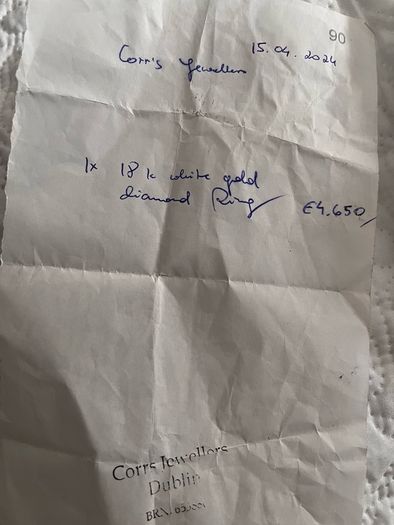 90
15.04.2024
Corr's Jewellers
1x 18k white gold
diamond Ring €4.650/
Corrs Jewellers
Dublin
BRN.